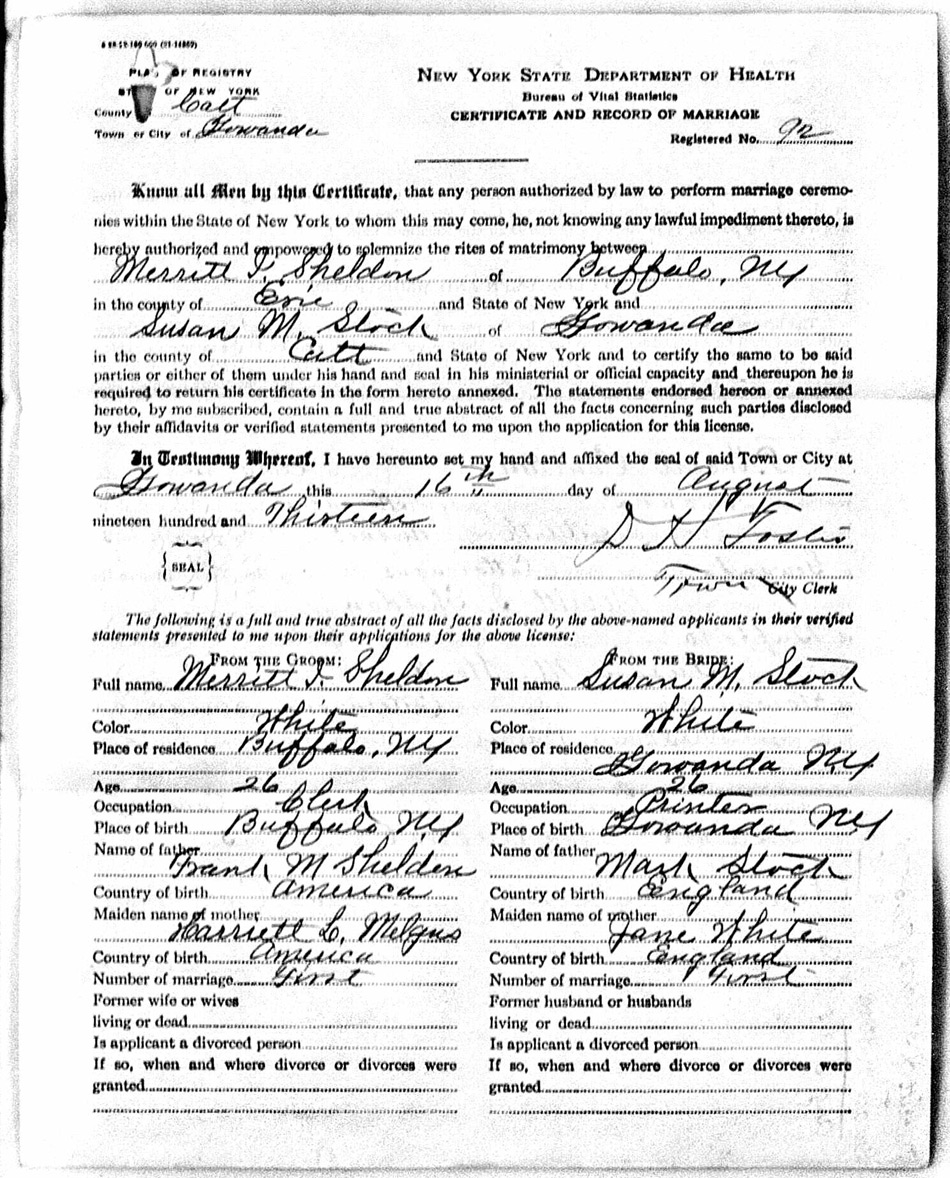 PLACE OF REGISTRY
STATE OF NEW YORK
County Catt
Town or City of Gowanda
NEW YORK STATE DEPARTMENT OF HEALTH
Bureau of Vital Statistics
CERTIFICATE AND RECORD OF MARRIAGE
Registered No. 92
Know all Men by this Certificate, that any person authorized by law to perform marriage ceremo-
nies within the State of New York to whom this may come, he, not knowing any lawful impediment thereto, is
hereby authorized and empowered to solemnize the rites of matrimony between
Merritt I. Sheldon of Buffalo, NY
in the county of Erie and State of New York and
Susan M. Stock of Gowanda
in the county of Catt and State of New York and to certify the same to be said
parties or either of them under his hand and seal in his ministerial or official capacity and thereupon he is
required to return his certificate in the form hereto annexed. The statements endorsed hereon or annexed
hereto, by me subscribed, contain a full and true abstract of all the facts concerning such parties disclosed
by their affidavits or verified statements presented to me upon the application for this license.
In Testimony Whereof, I have hereunto set my hand and affixed the seal of said Town or City at
Gowanda this 16th day of August
nineteen hundred and Thirteen
D H Foster
SEAL
Town City Clerk
The following is a full and true abstract of all the facts disclosed by the above-named applicants in their verified
statements presented to me upon their applications for the above license:
FROM THE GROOM:
Full name Merritt I. Sheldon
Color White
Place of residence Buffalo, NY
Age 26
Occupation Clerk
Place of birth Buffalo, NY
Name of father
Frank M Sheldon
Country of birth America
Maiden name of mother
Harriett L. Melgus
Country of birth America
Number of marriage First
Former wife or wives
living or dead
Is applicant a divorced person
If so, when and where divorce or divorces were
granted
FROM THE BRIDE:
Full name Susan M. Stock
Color White
Place of residence
Gowanda NY
Age 26
Occupation Printer
Place of birth Gowanda NY
Name of father
Mark Stock
Country of birth England
Maiden name of mother
Jane White
Country of birth England
Number of marriage First
Former husband or husbands
living or dead
Is applicant a divorced person
If so, when and where divorce or divorces were
granted